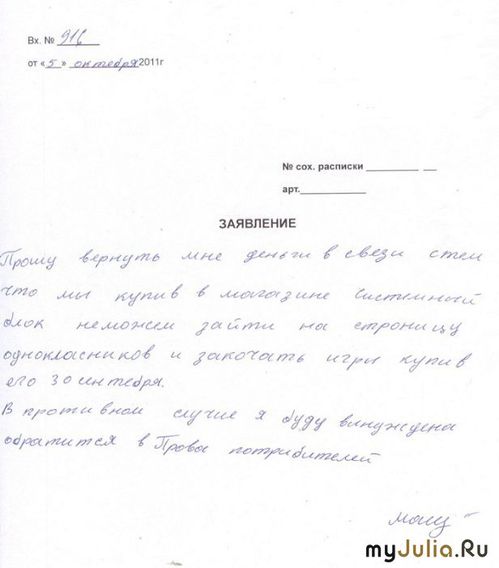 Вх. № 916
от «5» октебря 2011г
№ сох. расписки ________ __
арт.___________
ЗАЯВЛЕНИЕ
Прошу вернуть мне деньги в свези стем
что мы купив в магазине системный
блок неможем зайти на строницу
однокласников и закочать игры купив
его 30 интебря.
В противном случие я буду винуждена
обратится в Права потрибителей
myJulia.Ru